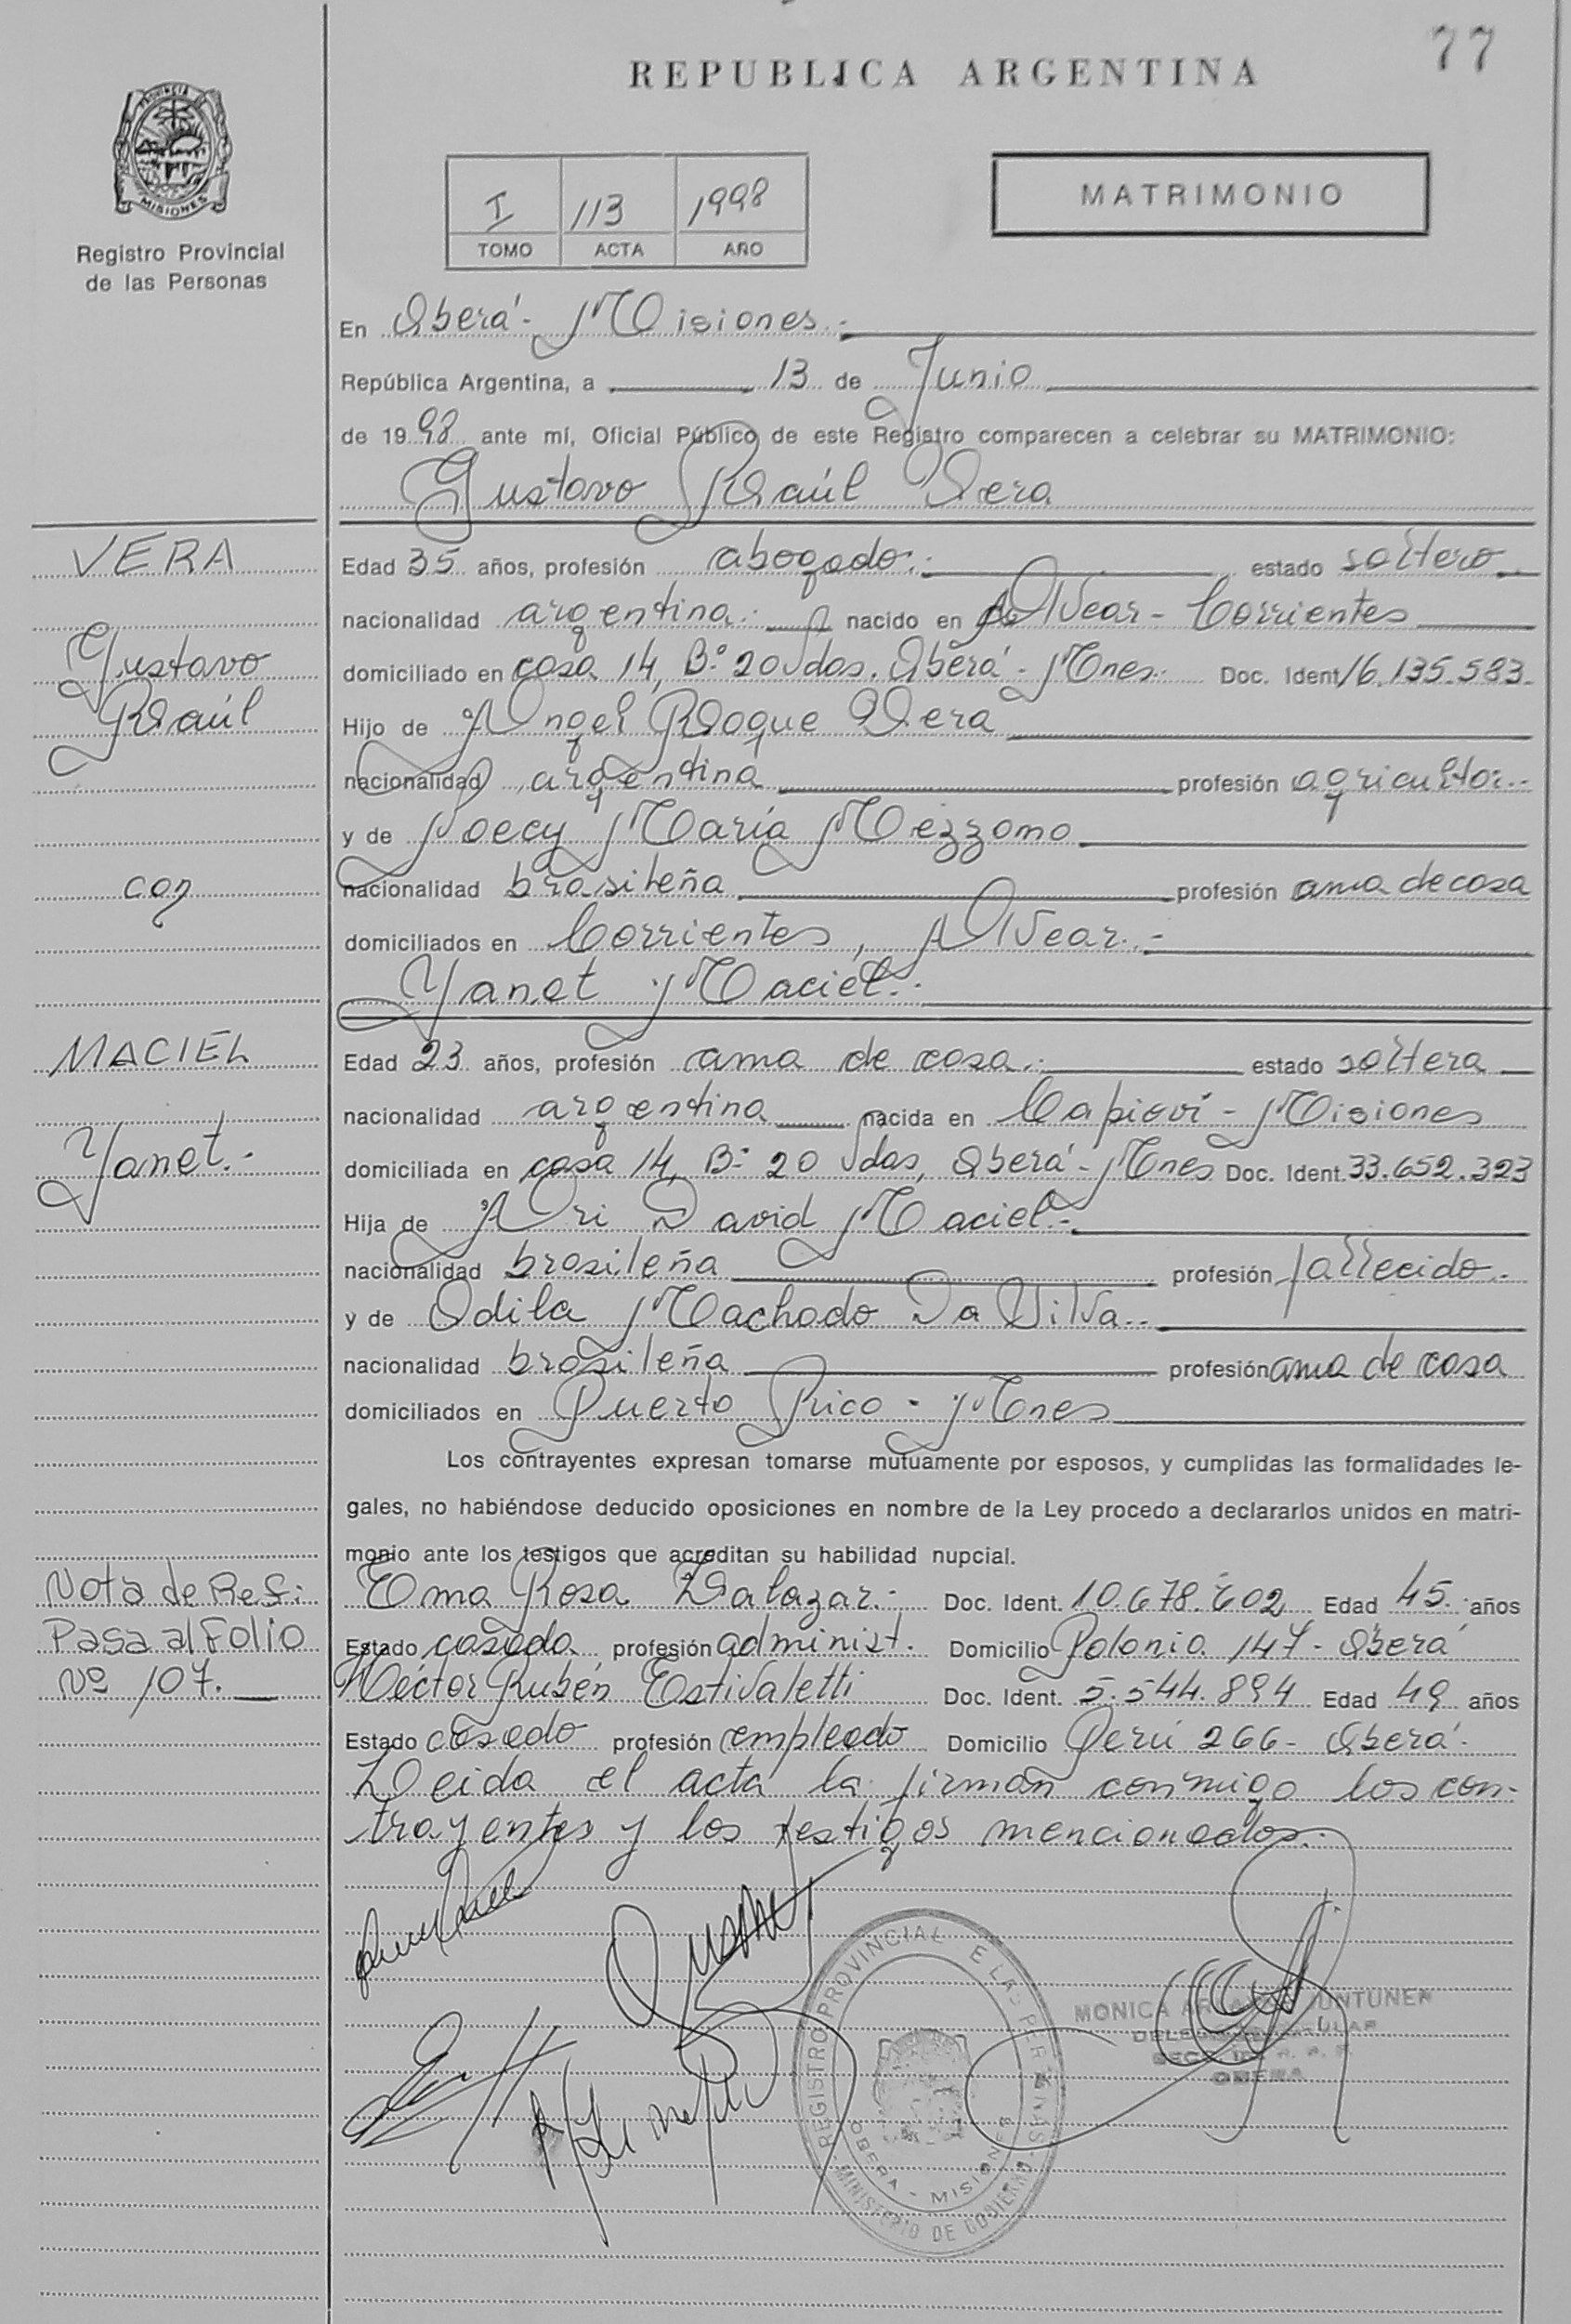 77
REPUBLICA ARGENTINA
PROVINCIA
MISIONES
Registro Provincial
de las Personas
I 113 1998
TOMO ACTA AÑO
MATRIMONIO
En Oberá - Misiones.-
República Argentina, a 13 de Junio
de 1998 ante mí, Oficial Público de este Registro comparecen a celebrar su MATRIMONIO:
Gustavo Raúl Vera
VERA
Gustavo
Raúl
con
MACIEL
Yanet.-
Edad 35 años, profesión abogado.- estado soltero
nacionalidad argentina.- nacido en Alvear - Corrientes
domiciliado en casa 14, B.º 20 Vdas. Oberá - Mnes. Doc. Ident 16.135.583.
Hijo de Angel Roque Vera
nacionalidad argentina profesión agricultor.-
y de Noecy María Mezzomo
nacionalidad brasileña profesión ama de casa
domiciliados en Corrientes, Alvear.-
Yanet Maciel.-
Edad 23 años, profesión ama de casa.- estado soltera
nacionalidad argentina nacida en Capioví - Misiones
domiciliada en casa 14, B.º 20 Vdas, Oberá - Mnes Doc. Ident. 33.652.323
Hija de Ari David Maciel.-
nacionalidad brasileña profesión fallecido.-
y de Odila Machado Da Silva.-
nacionalidad brasileña profesión ama de casa
domiciliados en Puerto Rico - Mnes
Los contrayentes expresan tomarse mutuamente por esposos, y cumplidas las formalidades le-
gales, no habiéndose deducido oposiciones en nombre de la Ley procedo a declararlos unidos en matri-
monio ante los testigos que acreditan su habilidad nupcial.
Nota de Ref:
Pasa al Folio
Nº 107.
Ema Rosa Salazar.- Doc. Ident. 10.678.602 Edad 45 años
Estado casada profesión administ. Domicilio Polonia 147 - Oberá
Héctor Rubén Estivaletti Doc. Ident. 5.544.894 Edad 49 años
Estado casado profesión empleado Domicilio Perú 266 - Oberá.
Leida el acta la firman conmigo los con-
trayentes y los testigos mencionados.-
REGISTRO PROVINCIAL DE LAS PERSONAS
OBERA - MISIONES
MINISTERIO DE GOBIERNO
MONICA
OBERA